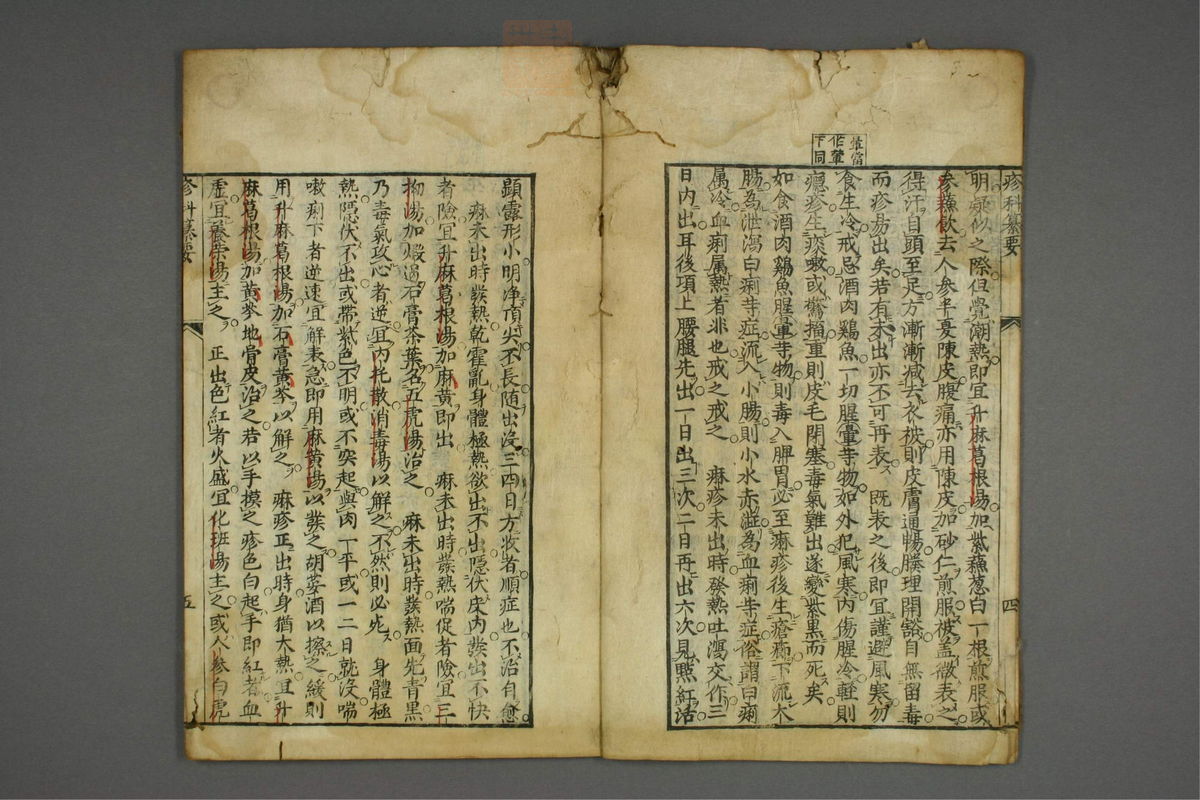 疹科纂要
四
明疑似之際但覺潮熱即宜升麻葛根湯加紫蘓葱白一根煎服或
参蘓飲去人参半夏陳皮腹痛亦用陳皮加砂仁煎服被盖微表之
得汗自頭至足方漸漸减去衣被則皮膚通暢腠理開豁自無留毒
而疹易出矣若有未出亦不可再表既表之後即宜謹避風寒勿
食生冷戒忌酒肉鷄魚一切腥葷䓁物如外犯風寒内傷腥冷輕則
癮疹生痰嗽或驚搐重則皮毛閉塞毒氣難出遂變紫黒而死矣
如食酒肉鷄魚腥葷䓁物則毒入脾胃必至麻疹後生瘡痛下流大
腸為泄瀉白痢䓁症流入小腸則小水赤澁為血痢䓁症俗謂曰痢
属冷血痢属熱者非也戒之戒之 麻疹未出時發熱吐瀉交作三
日内出耳後項上腰腿先出一日出三次二日再出六次見㸃紅活
當
作葷
下同
顕露形小明浄頂尖不長随出没三四日方收者順症也不治自愈
麻未出時發熱乾霍亂身體極熱欲出不出隠伏床内發出不快
者險宜升麻葛根湯加麻黄即出 麻未出時發熱喘促者險宜三
拗湯加煅過石膏茶葉名五虎湯治之 麻未出時發熱面先青黒
乃毒氣攻心者逆宜内托散消毒湯以解之不然則必死 身體極
熱隠伏不出或帶紫色不明或不突起與肉一平或一二日就没喘
嗽痢下者逆速宜解表急即用麻黄湯以發之胡荽酒以擦之緩則
用升麻葛根湯加石膏黄芩以解之 麻疹正出時身猶大熱宜升
麻葛根湯加黄芩地骨皮治之若以手摸之疹色白起手即紅者血
虚宜養荣湯主之 正出色紅者火盛宜化斑湯主之或人参白虎
疹科纂要
五